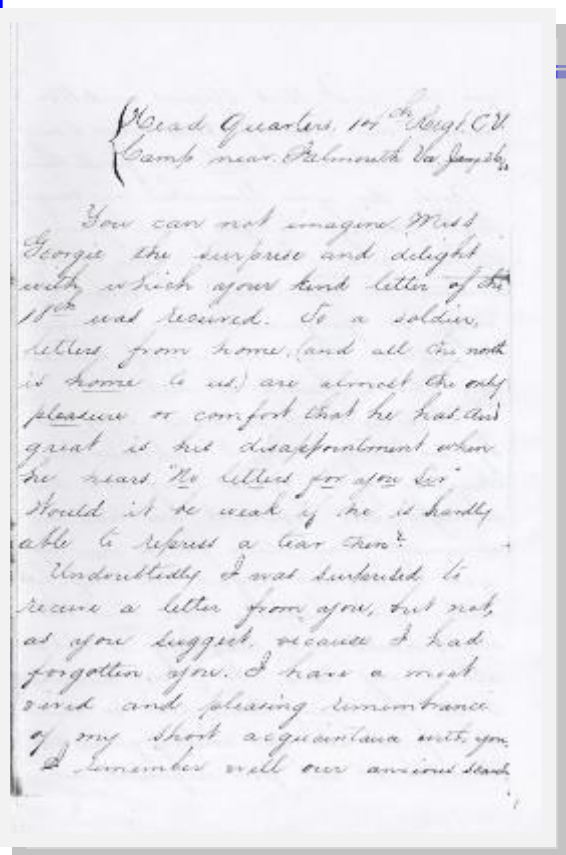 Head Quarters. 14th Regt. C.V.
Camp near Falmouth Va. Jany
You can not imagine, Miss
Georgie the surprise and delight
with which your kind letter of the
18th was received. To a soldier,
letters from home, (and all the north
is home to us.) are almost the only
pleasure or comfort that he has. And
great is his disappointment when
he hears. "No letters for you Sir"
Would it be weak if he is hardly
able to repress a tear then?
Undoubtedly I was surprised to
receive a letter from you, but not,
as you suggest, because I had
forgotten you. I have a most
vivid and pleasing remembrance
of my short acquaintance with you.
I remember well our anxious search